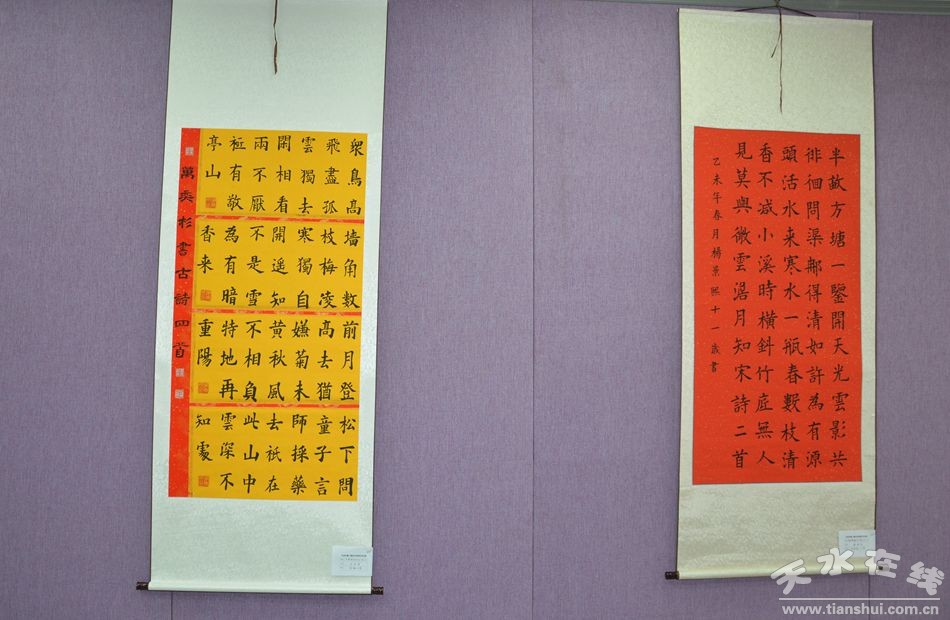 衆鳥高
飛盡孤
雲獨去
閑相看
兩不厭
祗有敬
亭山
墻角數
枝梅凌
寒獨自
開遥知
不是雪
為有暗
香来
前月登
高去猶
嫌菊未
黄秋風
不相負
特地再
重陽
松下問
童子言
師採藥
去祇在
此山中
雲深不
知處
萬奕杉書古詩四首
半畝方塘一鑒開天光雲影共
徘徊問渠那得清如許為有源
頭活水来寒水一瓶春數枝清
香不減小溪時横斜竹底無人
見莫與微雲澹月知宋詩二首
乙未年春月楊景熙十一歲書
天水在线
www.tianshui.com.cn